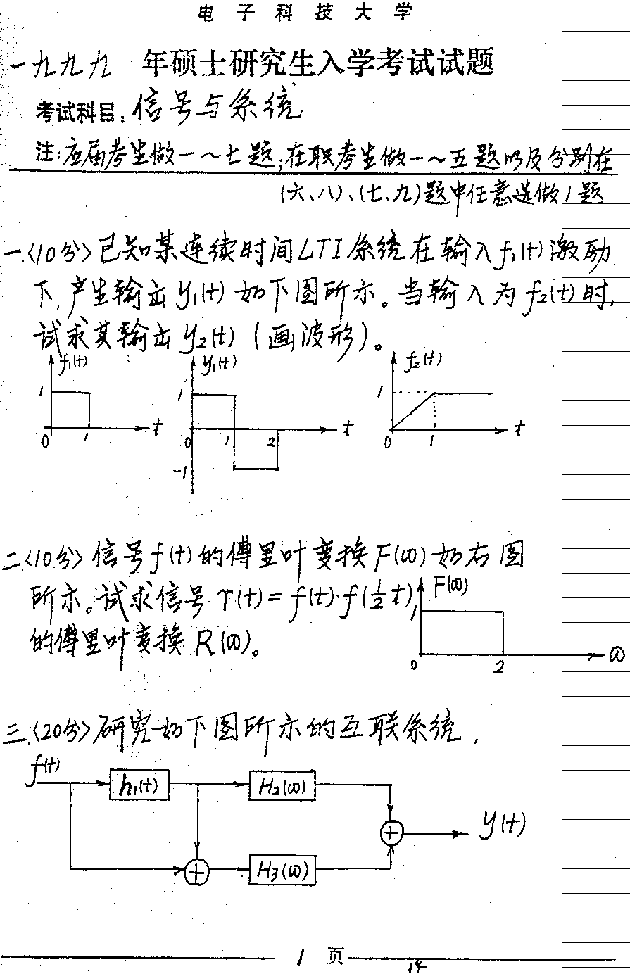 电子科技大学
一九九九 年硕士研究生入学考试试题
考试科目: 信号与系统
注: 应届考生做一~七题; 在职考生做一~五题以及分别在
(六、八)、(七、九)题中任意选做1题
一.〈10分〉已知某连续时间LTI系统在输入f₁(t)激励
下, 产生输出y₁(t)如下图所示。当输入为f₂(t)时,
试求其输出y₂(t) (画波形)。
f₁(t) y₁(t) f₂(t)
1 1 1
0 1 t 0 1 2 t 0 1 t
-1
二.〈10分〉信号f(t)的傅里叶变换F(ω)如右图
所示。试求信号r(t)=f(t)·f(½t)
的傅里叶变换R(ω)。
F(ω)
1
0 2 ω
三.〈20分〉研究如下图所示的互联系统,
f(t) h₁(t) H₂(ω)
+ y(t)
+ H₃(ω)
1 页
14